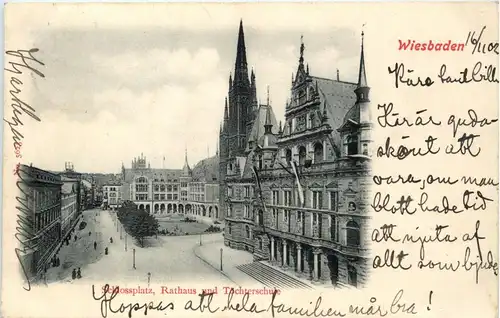 Wiesbaden 16/11 02
Kära
Här är guda-
skönt att
vara, om man
blott hade tid
att njuta af
allt som bjude
Schlossplatz, Rathaus und Töchterschule
Hoppas att hela familien mår bra!